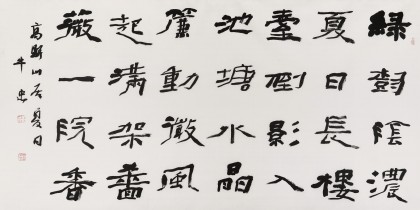 綠樹陰濃
夏日長樓
臺倒影入
池塘水晶
簾動微風
起滿架薔
薇一院香
高駢山居夏日
牛忠